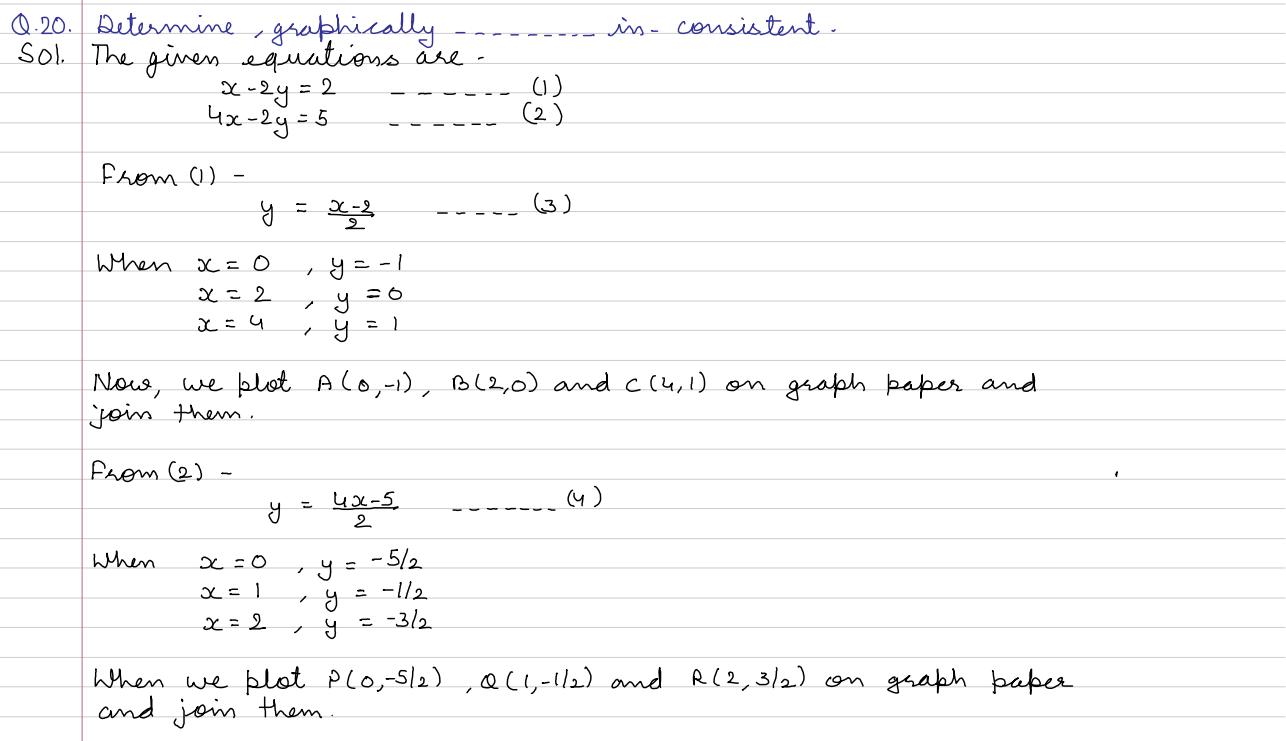 Q.20. Determine, graphically --------- in-consistent.
Sol. The given equations are -
x-2y = 2 ------ (1)
4x-2y = 5 ------ (2)
From (1) -
y = \frac{x-2}{2} ----- (3)
When x = 0 , y = -1
x = 2 , y = 0
x = 4 , y = 1
Now, we plot A(0,-1), B(2,0) and C(4,1) on graph paper and
join them.
From (2) -
y = \frac{4x-5}{2} ------- (4)
When x = 0 , y = -5/2
x = 1 , y = -1/2
x = 2 , y = -3/2
When we plot P(0,-5/2), Q(1,-1/2) and R(2,3/2) on graph paper
and join them.